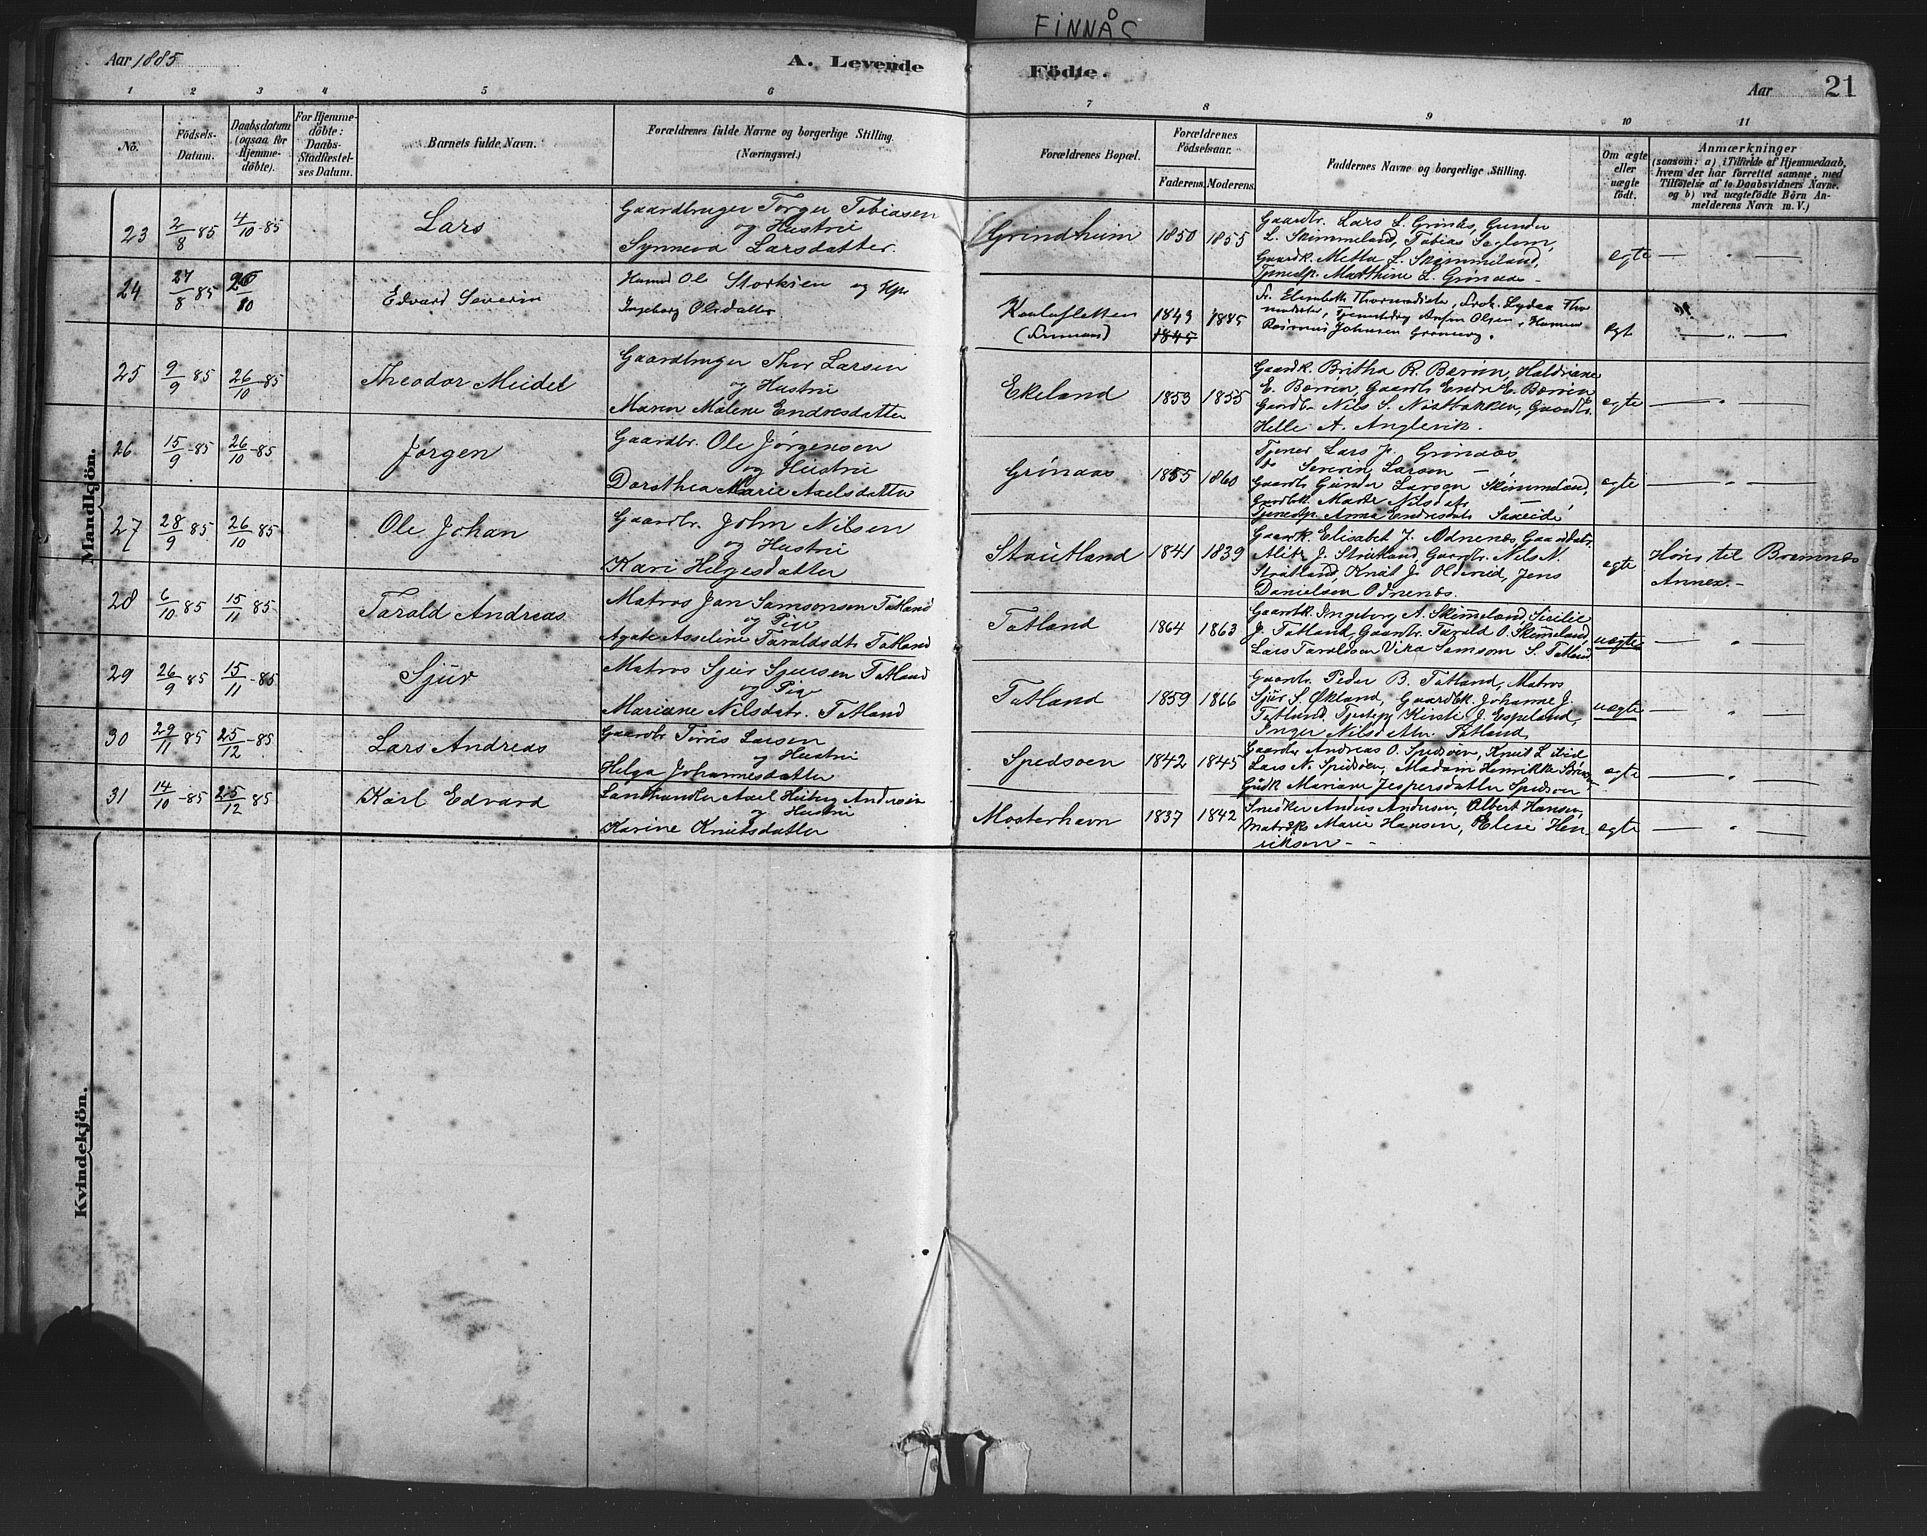 FINNÅS
Aar 1885
A. Levende Födte.
Aar
21
1 2 3 4 5 6 7 8 9 10 11
No.
Födsels-
Datum.
Daabsdatum
(ogsaa for
Hjemme-
døbte).
For Hjemme-
døbte:
Daabs-
Stadfæstel-
ses Datum.
Barnets fulde Navn.
Forældrenes fulde Navne og borgerlige Stilling.
(Næringsvei.)
Forældrenes Bopæl.
Forældrenes
Födselsaar.
Faderens. Moderens.
Faddernes Navne og borgerlige Stilling.
Om ægte
eller
uægte
født.
Anmærkninger
(saasom: a) i Tilfælde af Hjemmedaab,
hvem der har forrettet samme, med
Tilføielse af to Daabsvidners Navne.
og b) ved uægtefødte Börn An-
melderens Navn m. V.)
Mandkjön.
23 2/8 85 4/10-85 Lars
Gaardbruger Torger Tobiasen
og Hustru
Synneva Larsdatter.
Grindheim 1850 1855
Gaardbr. Lars L. Grinds, Gunder
L. Skimmeland, Tobias Seglem,
Gaardk. Metta L. Skimmeland,
Tjenestp. Matthine L. Grønaas -
egte — " —
24 27/8 85 26/10 Edvard Severin
Ole Storksen og
Ingeborg Olsdatter
1843 1845
1845
Johnsen
egt — " —
25 9/9 85 26/10-85 Theodor Meidel
Gaardbruger Thor Larsen
og Hustru
Maren Malene Endresdatter
Ekeland 1853 1855
Gaardk. Britha R. Børøen, Haldriane
E. Børøen, Gaardb. Endre E. Børøen
Gardbr. Nils S. Nøstbakken, Gaardbr.
Helle A. Anglevik.
egte — " —
26 15/9-85 26/10-85 Jørgen
Gaardbr. Ole Jørgensen
og Hustru
Dorothea Marie Axelsdatter
Grønaas 1855 1860
Tjener Lars J. Grönaas
do Severin Larsen —
Gaardb. Gunder Larsen Skimmeland,
Gardbk. Marte Nilsdtr —
Tjenestp. Anna Endresdatr Saxeide,
egte — " —
27 28/9 85 26/10-85 Ole Johan
Gaardbr. John Nilsen
og Hustru
Kari Helgesdatter
Stautland 1841 1839
Gaardk. Elisabet J. Odnenes, Gaardbdatr.
Alite J. Stautland, Gaardbr. Nils N.
Stautland, Knut J. Oldereid, Jens
Danielsen Odnenes.
egte Hører til Bremnæs
Annex. -
28 6/10 85 15/11-85 Tarald Andreas
Matros Jan Samsonsen Tatland
og Pige
Agate Asseline Taraldsdt. Tatland
Tatland 1864 1863
Gaardbk. Ingeborg A. Skimmeland, Sicilie
J. Tatland, Gaardbr. Tarald O. Skimmeland,
Lars Taraldsen Vika Samson S. Tatland
uægte — " —
29 26/9 85 15/11-85 Sjur
Matros Sjur Sjursen Tatland
og Pige
Mariane Nilsdatr. Tatland
Tatland 1859 1866
Gaardbr. Peder B. Tatland, Matros
Sjur S. Økland, Gaardbk. Johanne J.
Tatland, Tjestep. Kirsti J. Espeland,
Inger Nilsdatter Tatland,
uægte — " —
30 29/11 85 25/12-85 Lars Andreas
Gaardbr Tørris Larsen
og Hustru
Helga Johannesdatter
Spedsøen 1842 1845
Gaardbr Andreas O. Spedsøen, Knut L. ibid
Lars N. Spidsøen, Madam Henrikke
Gbdk Mariane Jespersdatter Spedsøen
egte — " —
31 14/10-85 25/12 85 Karl Edvard
Landhandler Axel Andersen
og Hustru
Karine Knutsdatter
Mosterhavn 1837 1842
Snedker Anders Andersen, Albert Hansen,
Matrosk. Marie Hansen, Elise Hen-
riksen - -
egte — " —
Kvindekjön.